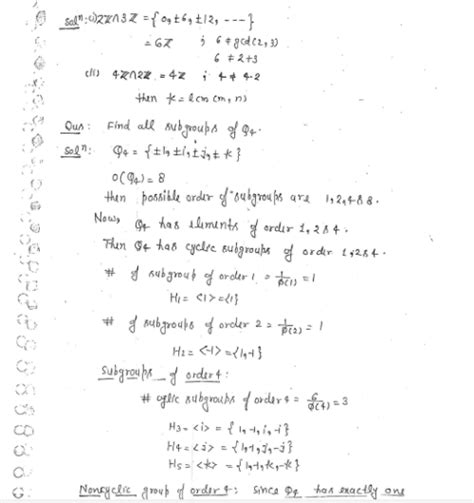 Solⁿ: (i) 2Z∩3Z = {0, ±6, ±12, ---}
= 6Z ; 6 ≠ gcd(2,3)
6 ≠ 2+3
(ii) 4Z∩2Z = 4Z ; 4 ≠ 4·2
then k = lcm(m, n)
Que: Find all subgroups of Q₄.
Solⁿ: Q₄ = {±1, ±i, ±j, ± k}
O(Q₄) = 8
then possible order of subgroups are 1, 2, 4 & 8.
Now, Q₄ has elements of order 1, 2 & 4.
Then Q₄ has cyclic subgroups of order 1, 2 & 4.
# of subgroup of order 1 = 1/φ(1) = 1
H₁ = <1> = {1}
# of subgroups of order 2 = 1/φ(2) = 1
H₂ = <-1> = {1, -1}
Subgroups of order 4:
# cyclic subgroups of order 4 = 6/φ(4) = 3
H₃ = <i> = {1, -1, i, -i}
H₄ = <j> = {1, -1, j, -j}
H₅ = <k> = {1, -1, k, -k}
Noncyclic group of order 4: Since Q₄ has exactly one